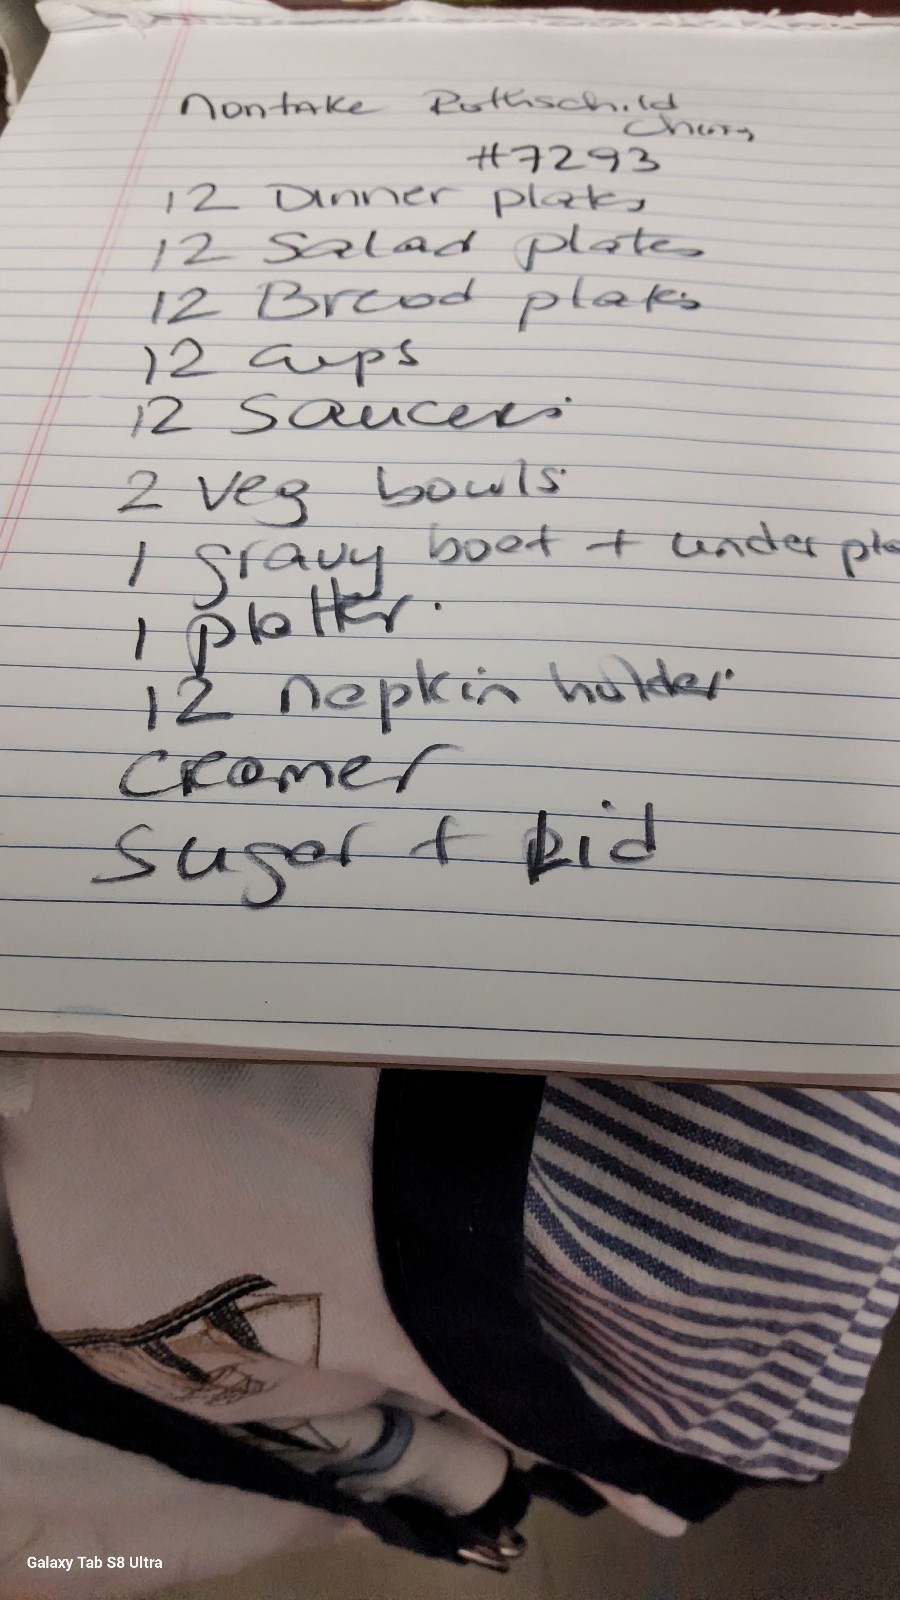 Noritake Rothschild
China
#7293
12 Dinner plates
12 Salad plates
12 Bread plates
12 cups
12 Saucers
2 veg bowls
1 gravy boat + under pla
1 platter.
12 napkin holder
Creamer
Sugar + Lid
Galaxy Tab S8 Ultra